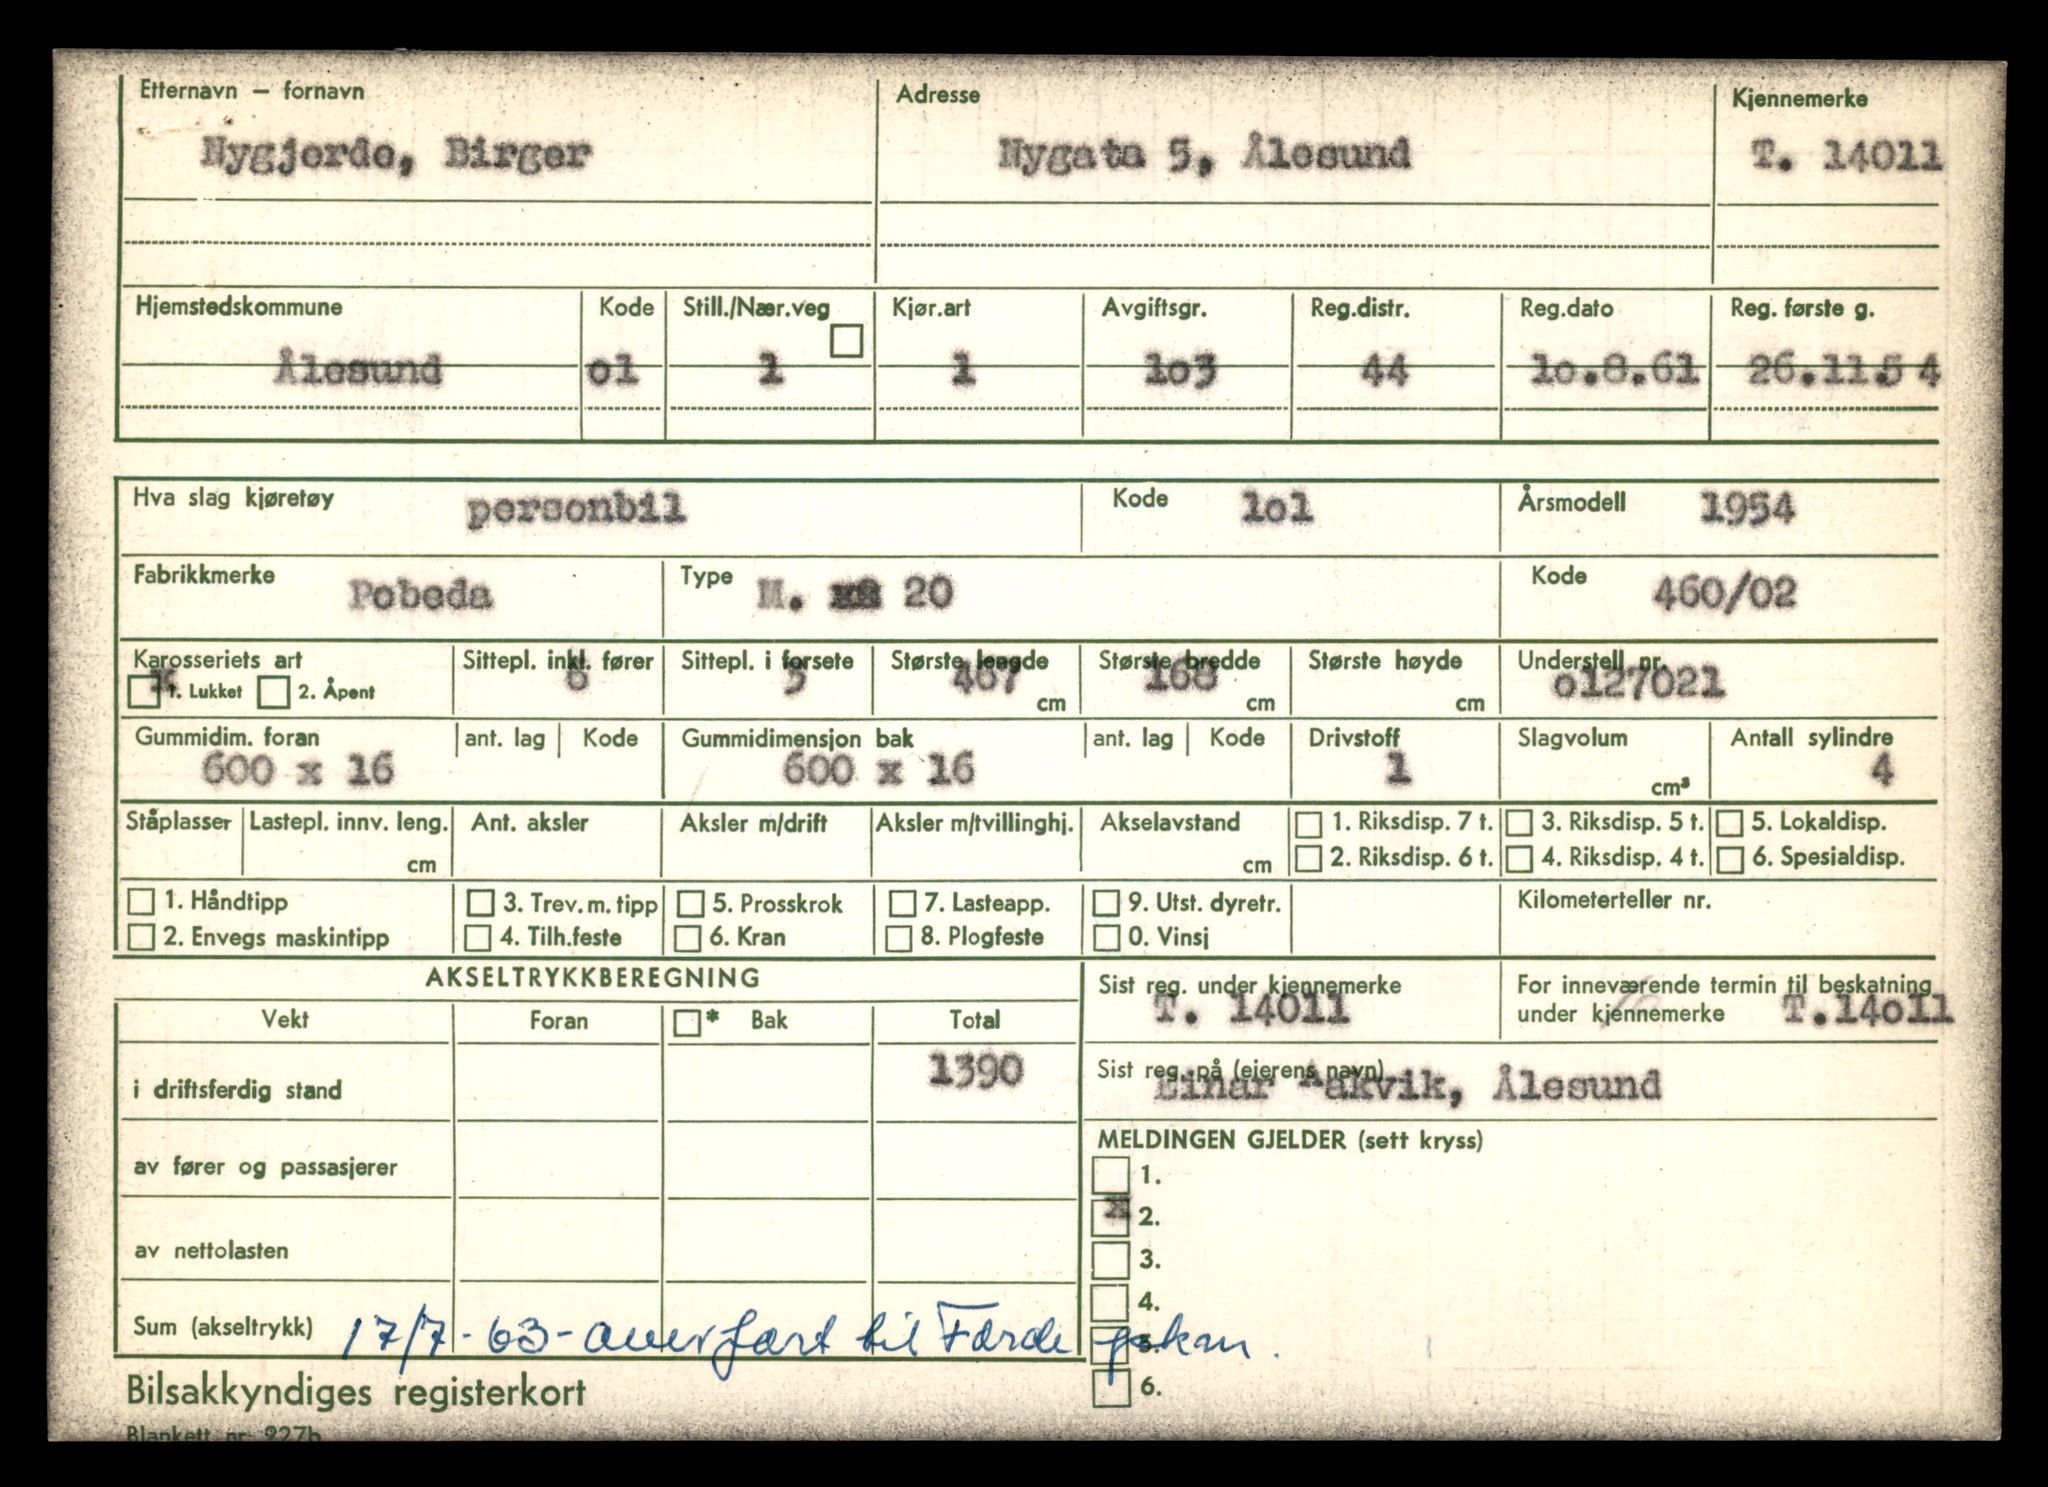 Etternavn – fornavn Adresse Kjennemerke
Nygjerde, Birger Nygata 5, Ålesund T. 14011
Hjemstedskommune Kode Still./Nær.veg Kjør.art Avgiftsgr. Reg.distr. Reg.dato Reg. første g.
Ålesund o1 1 1 1o3 44 1o.8.61 26.11.54
Hva slag kjøretøy personbil Kode 1o1 Årsmodell 1954
Fabrikkmerke Pobeda Type M. 20 Kode 460/02
Karosseriets art Sittepl. inkl. fører Sittepl. i forsete Største lengde Største bredde Største høyde Understell nr.
x 1. Lukket 2. Åpent 467 cm 168 cm cm o127021
Gummidim. foran ant. lag Kode Gummidimensjon bak ant. lag Kode Drivstoff Slagvolum Antall sylindre
600 x 16 600 x 16 1 cm³ 4
Ståplasser Lastepl. innv. leng. Ant. aksler Aksler m/drift Aksler m/tvillinghj. Akselavstand 1. Riksdisp. 7 t. 3. Riksdisp. 5 t. 5. Lokaldisp.
cm cm 2. Riksdisp. 6 t. 4. Riksdisp. 4 t. 6. Spesialdisp.
1. Håndtipp 3. Trev. m. tipp 5. Prosskrok 7. Lasteapp. 9. Utst. dyretr. Kilometerteller nr.
2. Envegs maskintipp 4. Tilh.feste 6. Kran 8. Plogfeste 0. Vinsj
AKSELTRYKKBEREGNING
Sist reg. under kjennemerke For inneværende termin til beskatning
T. 14011 under kjennemerke T.14o11
Vekt Foran * Bak Total
i driftsferdig stand 1390
Sist reg. på (eierens navn)
Einar Aakvik, Ålesund
MELDINGEN GJELDER (sett kryss)
1.
av fører og passasjerer
x 2.
av nettolasten
3.
4.
Sum (akseltrykk) 17/7-63- til Førde
5.
6.
Bilsakkyndiges registerkort
Blankett nr. 927b